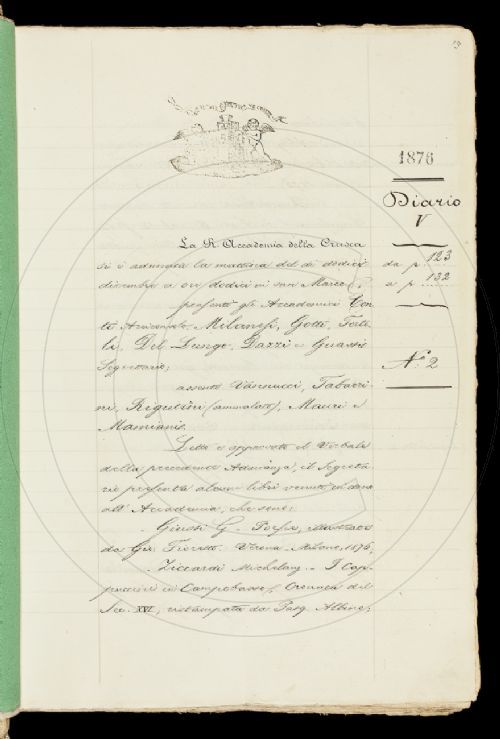 1876
Diario
V
da p. 123
a p. 132
N.° 2
La R. Accademia della Crusca
si è adunata la mattina del dì dodici
dicembre a ore dodici in san Marco,
presenti gli Accademici Con
ti Arciconsolo, Milanesi, Gotti, Tortoli,
Del Lungo, Dazzi e Guasti
Segretario;
assenti Vannucci, Tabarri
ni, Rigutini (ammalato), Mauri e
Mamiani.
Letto e approvato il Verbale
della precedente Adunanza, il Segreta
rio presenta alcuni libri venuti in dono
all'Accademia, che sono:
- Giusti G. Poesie, illustrate
da Fioretto. Verona - Milone, 1876,
- Ziccardi Michelang. - I Cap
puccini in Campobasso, Cronaca del
Sec. XVI, ristampata da Pasq. Albino;